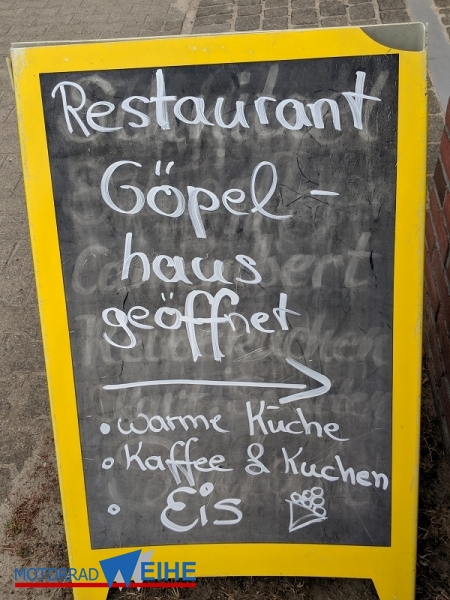 Restaurant
Göpel-
haus
geöffnet
• warme Küche
• Kaffee & Kuchen
• Eis
MOTORRAD WEIHE